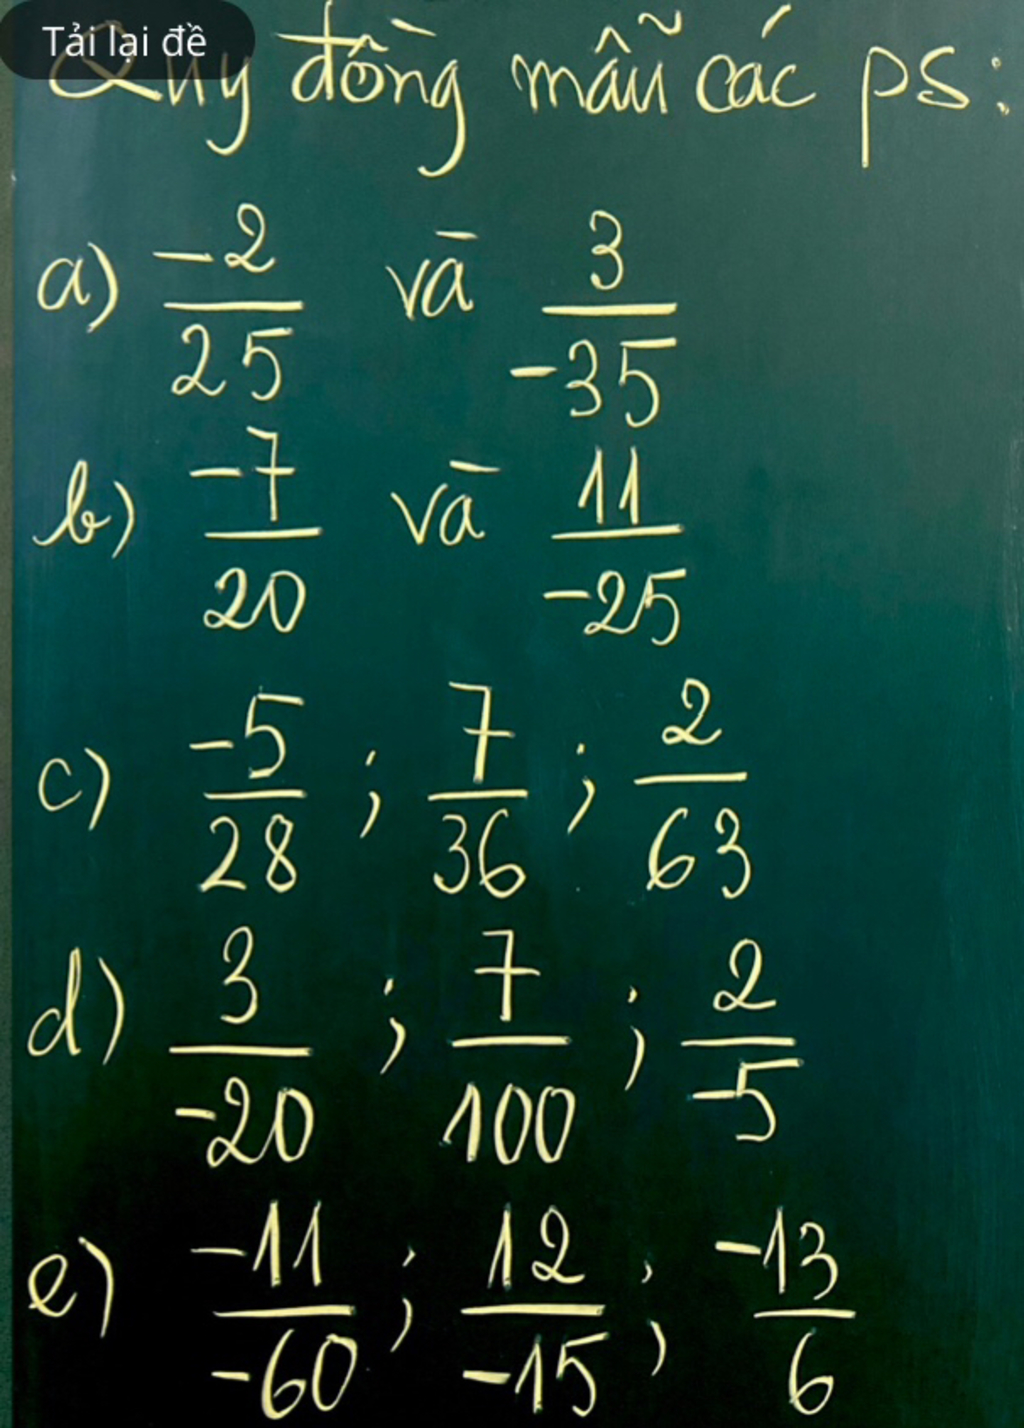 Tải lại đề
Quy đồng mẫu các ps:
a) -2/25 và 3/-35
b) -7/20 và 11/-25
c) -5/28 ; 7/36 ; 2/63
d) 3/-20 ; 7/100 ; 2/-5
e) -11/-60 ; 12/-15 ; -13/6